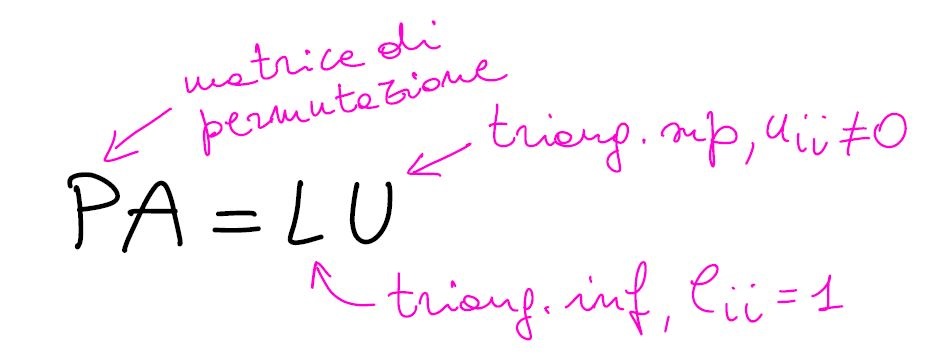 matrice di
permutazione
triang. sup, uii≠0
PA = LU
triang. inf, ℓii = 1